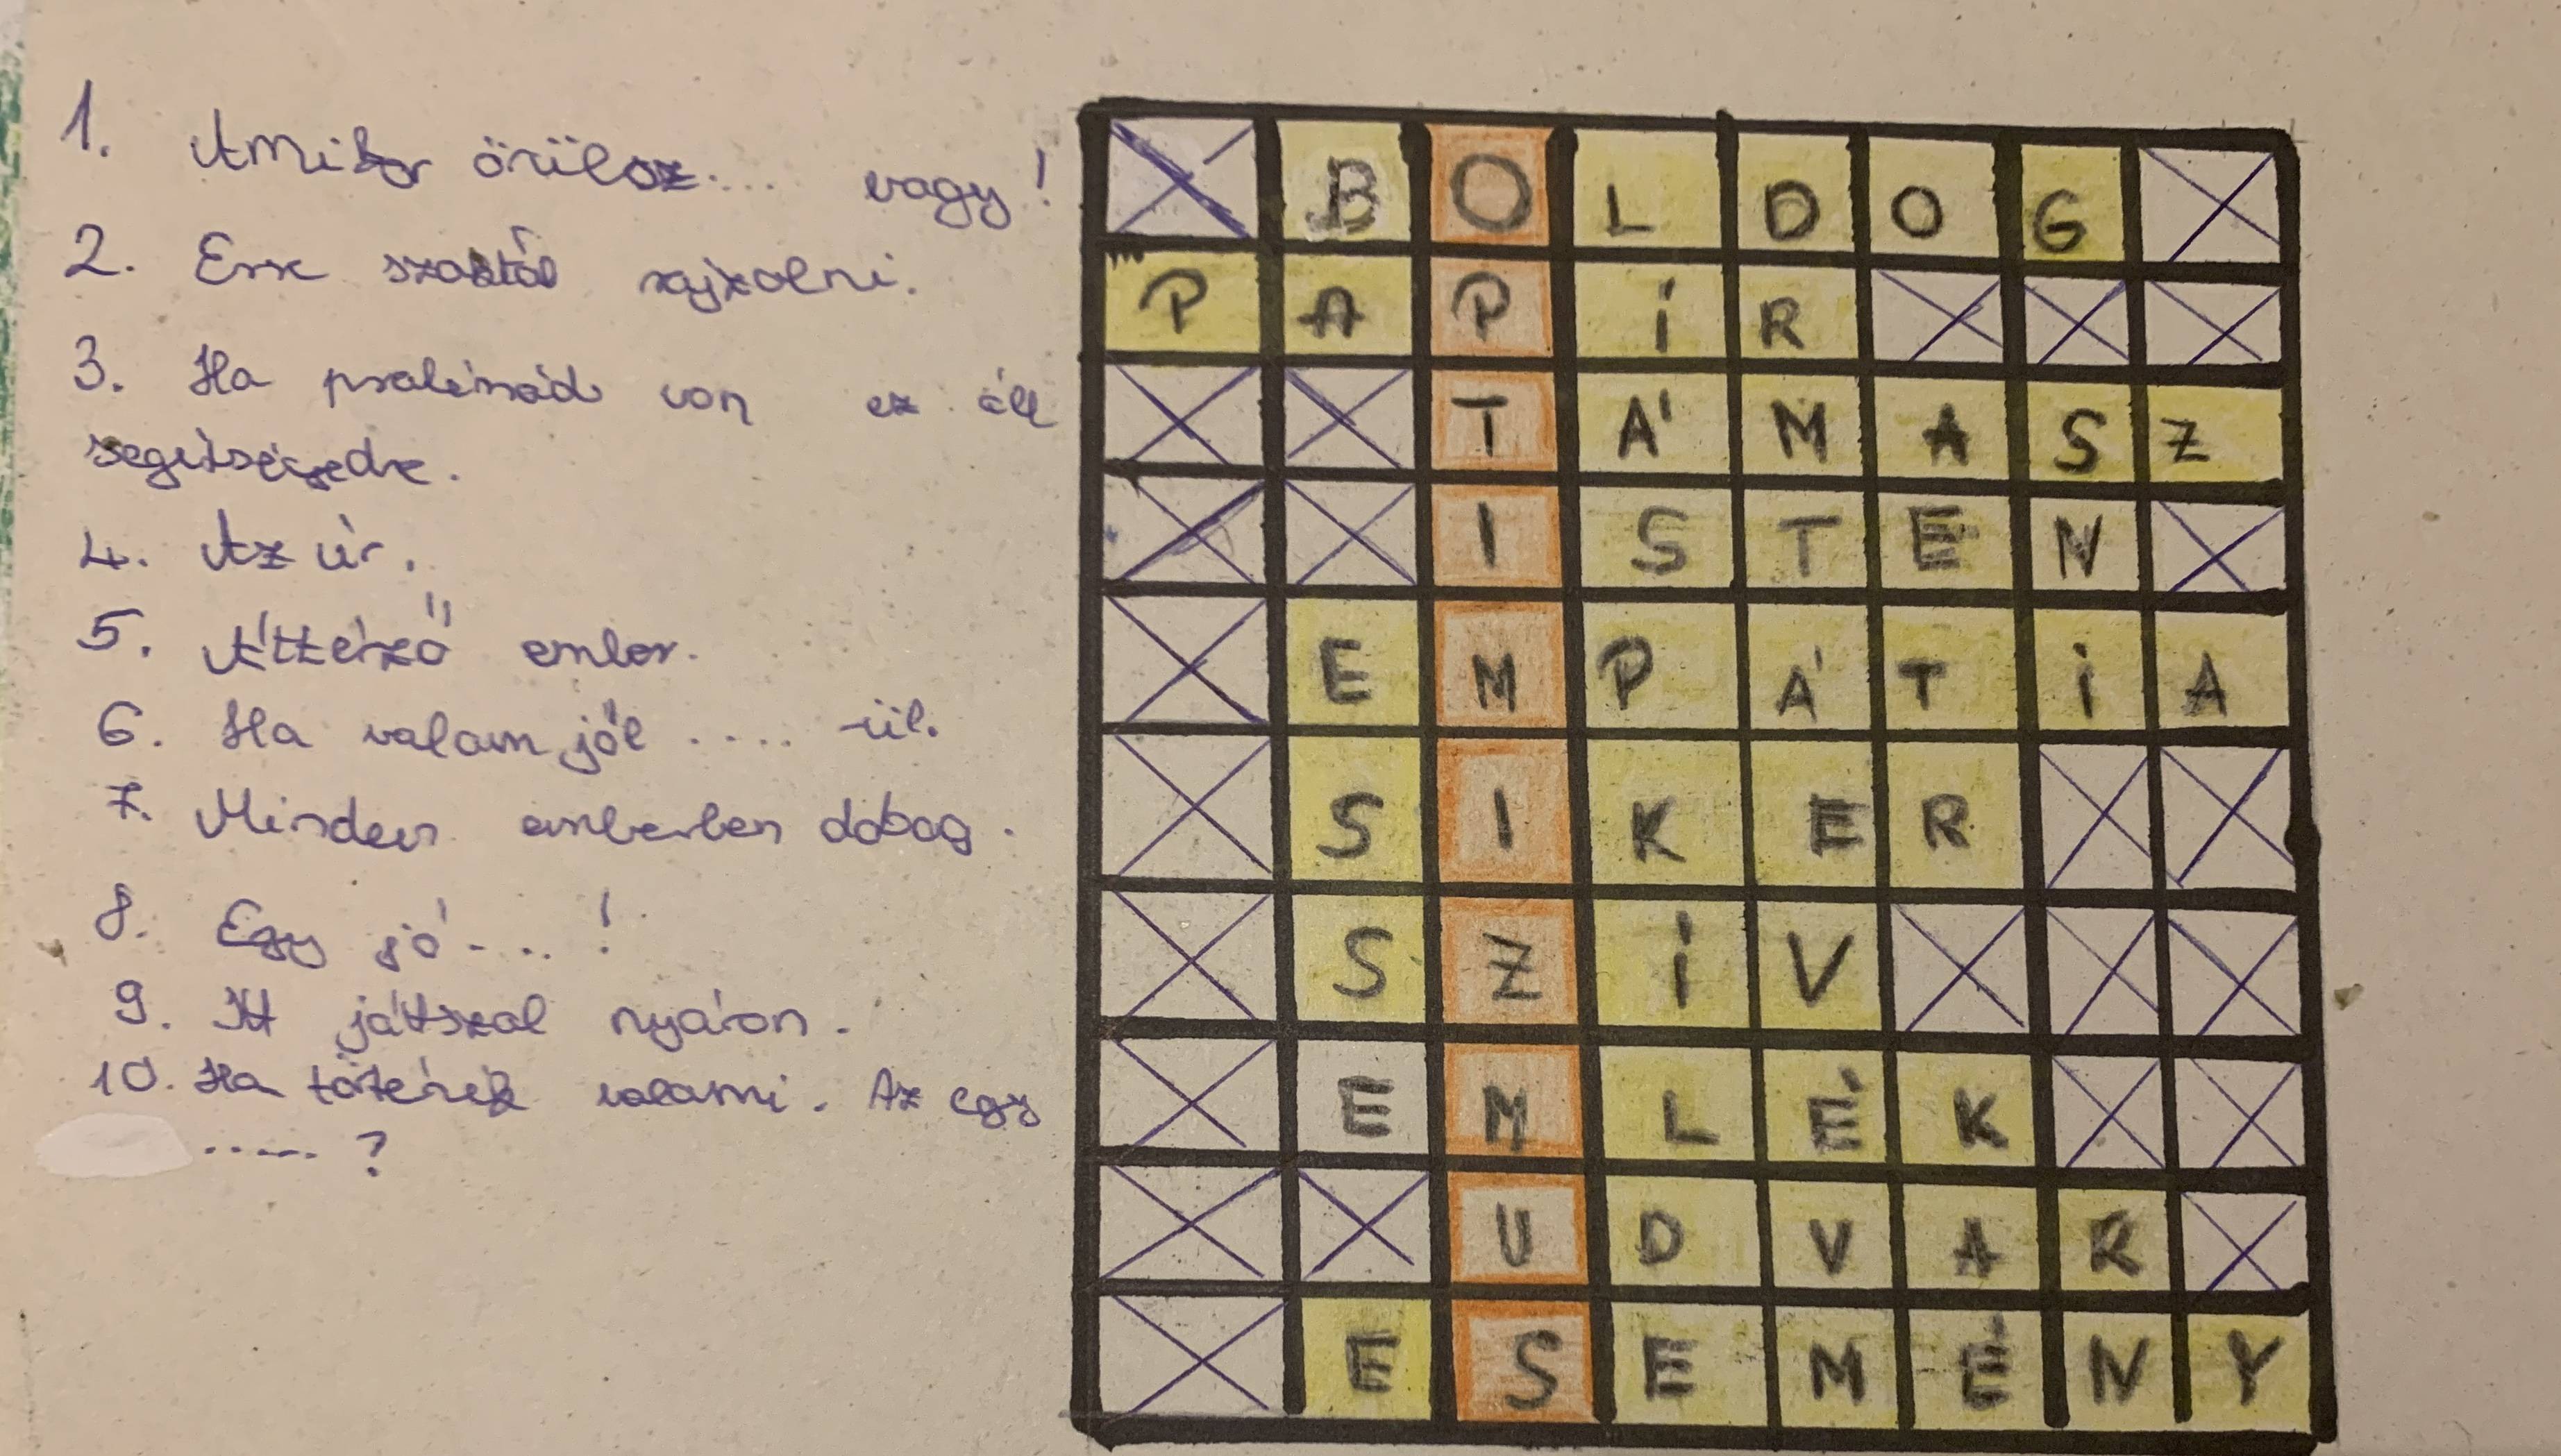 1. Amikor örülsz.... vagy!
2. Erre szoktál rajzolni.
3. Ha problémád van ez áll
segítségedre.
4. Az úr.
5. Áttérző ember.
6. Ha valam jól .... -ül.
7. Minden emberben dobog.
8. Egy jó.... !
9. Itt játszol nyáron.
10. Ha történik valami. Az egy
..... ?
B O L D O G
P A P Í R
T Á M A S Z
I S T E N
E M P Á T I A
S I K E R
S Z Í V
E M L É K
U D V A R
E S E M É N Y